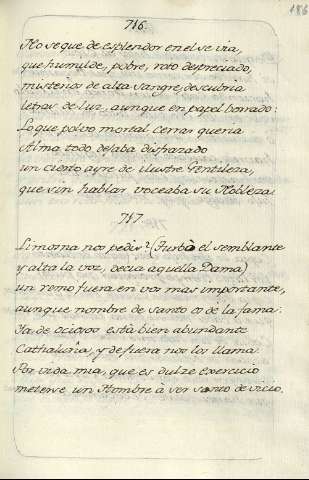 186
716.
No se que de esplendor en el se via,
que humilde, pobre, roto depreciado,
misterios de alta sangre, descubria
letras de luz, aunque en papel borrado:
Lo que polvo mortal cerrar queria
Alma todo dejaba disfrazado
un cierto ayre de ilustre Gentileza,
que sin hablar voceaba su Nobleza.
717
Limosna nos pedis? (Turbó el semblante
y alta la voz, decia aquella Dama)
un remo fuera en vos mas importante,
aunque nombre de santo os dé la fama:
Ya de ociosos está bien abundante
Cathaluña, y de fuera nos los llama.
Por vida mia, que es dulze exercicio
meterse un Hombre à ser santo de vicio.